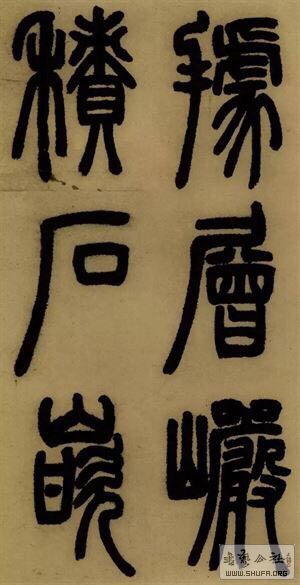 據層巖
積石嵌
書藝公社
WWW.SHUFA.ORG